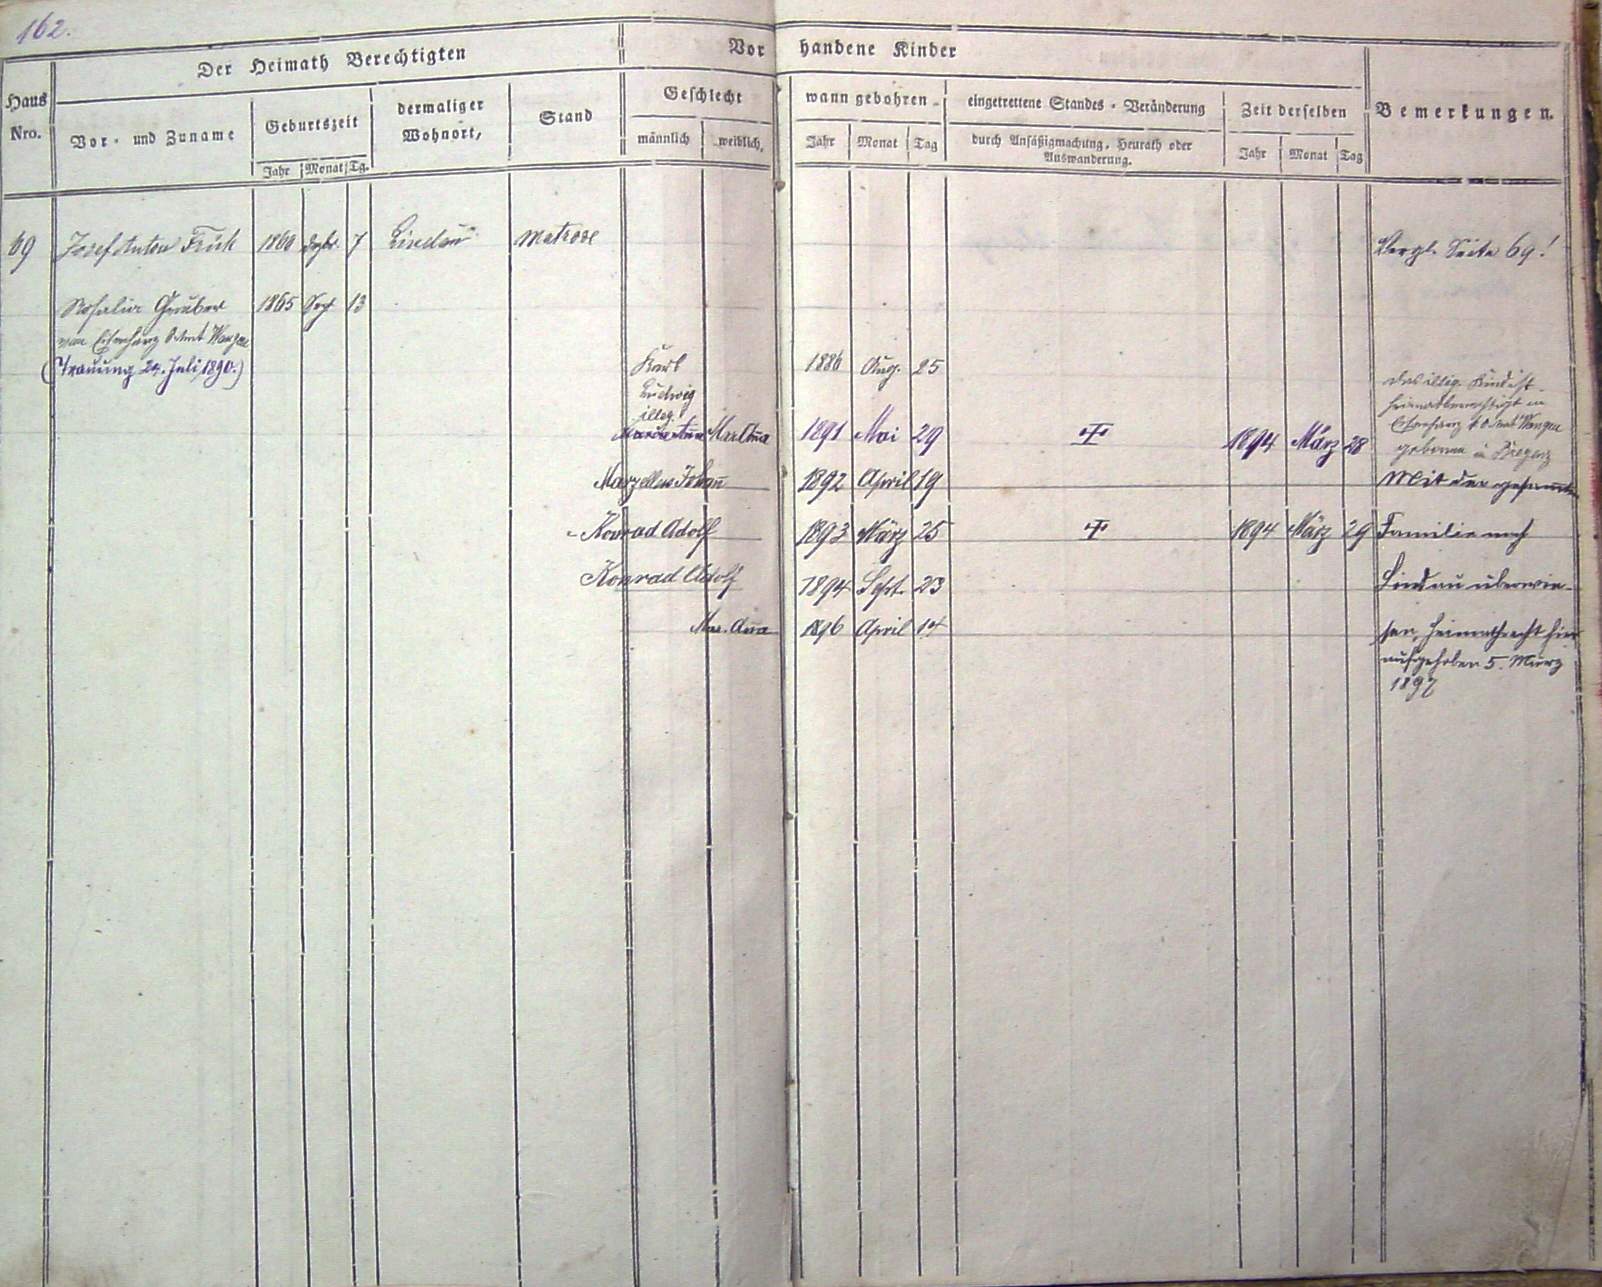 162.
Der Heimath Berechtigten
Vorhandene Kinder
Haus Nro.
Vor- und Zuname
Geburtszeit
Jahr Monat Tg.
dermaliger Wohnort,
Stand
Geschlecht
männlich weiblich.
wann gebohren
Jahr Monat Tag
eingetrettene Standes-Veränderung
durch Ansäßigmachung, Heurath oder
Auswanderung.
Zeit derselben
Jahr Monat Tag
Bemerkungen.
69 Josef Anton Frick 1860 Dezbr. 7 Lindau Matrose Vergl. Seite 69!
Rosalia Gruber 1865 Sept 13
von Eisenharz OAmt Wangen
(Trauung 24. Juli 1890.)
Karl 1886 Aug. 25
Ludwig
illeg.
das illeg. Kind ist
heimatberechtigt in
Eisenharz OAmt Wangen
geboren in Bregenz
Mar. Anna 1891 Mai 29 ✝ 1894 März 28
Marzellus Johann 1892 April 19 Mit der gesammten
Konrad Adolf 1893 März 25 ✝ 1894 März 29 Familie nach
Konrad Adolf 1894 Sept. 23 Lindau überwie-
Mar. Anna 1896 April 14 sen, Heimathrecht hier
aufgehoben 5. März
1897